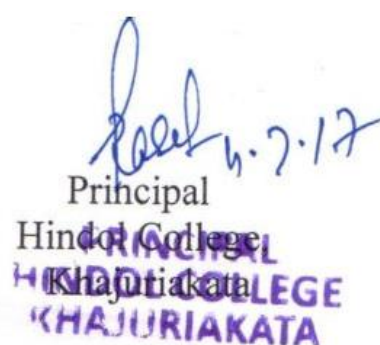 4.7.17
Principal
Hindol College,
Khajuriakata
PRINCIPAL
HINDOL COLLEGE
KHAJURIAKATA